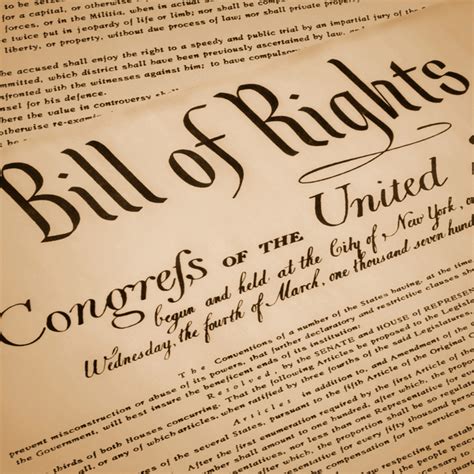 to be seized.
ces, or in the Militia, when in actual
be twice put in jeopardy of life or limb; nor shall
liberty, or property, without due process of law; nor shall private
accused shall enjoy the right to a speedy and public trial, by an impartial jury
committed, which district shall have been previously ascertained by law, and
confronted with the witnesses against him; to have compulsory
sel for his defence.
Where the value in controversy shall
otherwise re-exam
Bill of Rights
Congreſs OF THE United
begun and held at the City of New York, on
Wednesday, the fourth of March, one thousand seven hund
The Conventions of a number of the States having, at the time
prevent misconstruction or abuse of its powers, that further declaratory and restrictive clauses
the Government, will best insure the beneficent ends of its institution;
Resolved, by the SENATE and HOUSE of REPRESENT
of both Houses concurring. That the following Articles be proposed to the Legislatures
all, or any of which articles, when ratified by three fourths of the said Legislatures
Articles in addition to, and Amendment of the
pursuant to the fifth Article of the Original
After the first enumeration required by the first Article of
shall be not less than one hundred